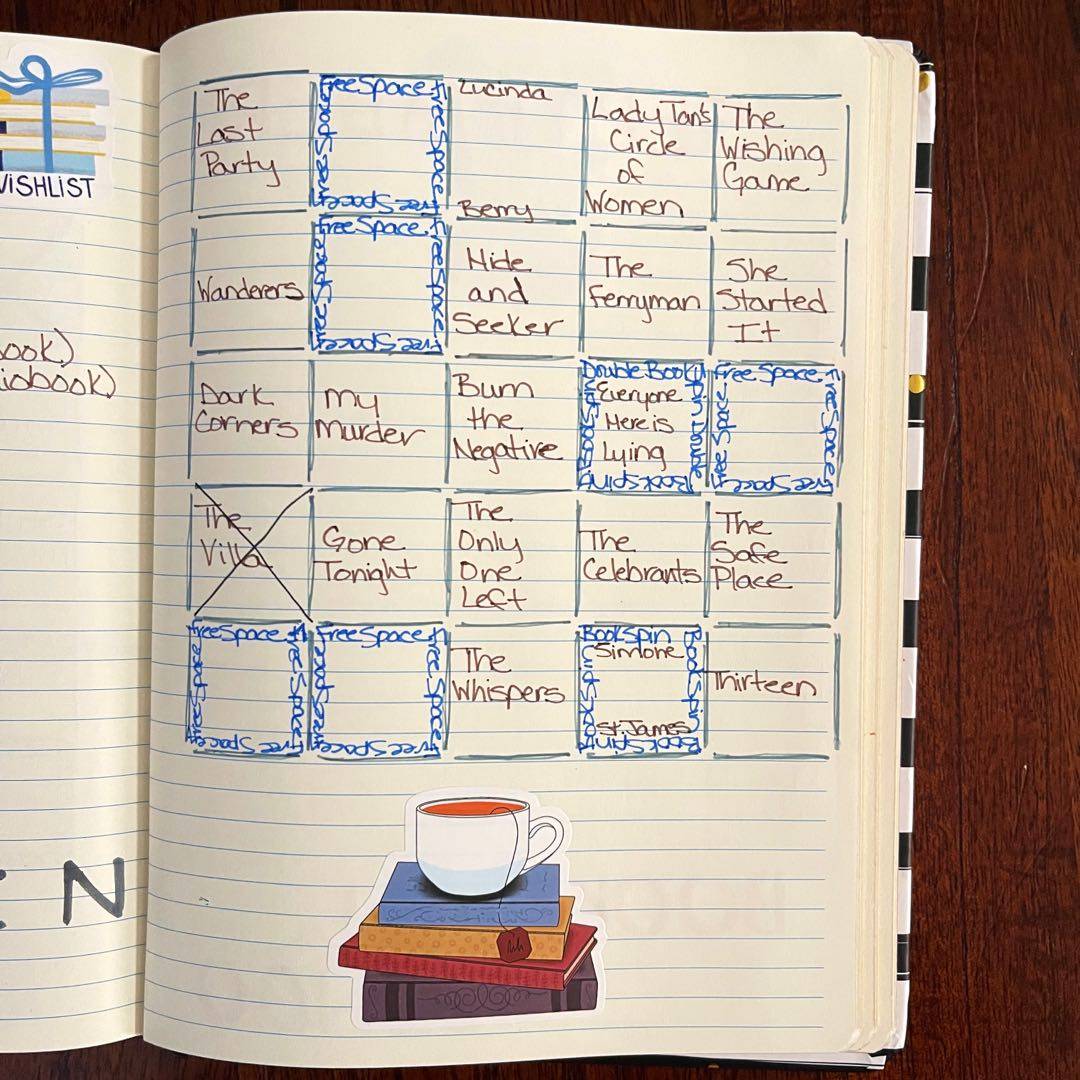 WiSHLiST
ook)
iobook)
N
The
Last
Party
Free Space
Free Space
Free Space
Free Space
Lucinda
Berry
Lady Tan's
Circle
of
Women
The
Wishing
Game
Wanderers
Free Space
Free Space
Free Space
Free Space
Hide
and
Seeker
The
Ferryman
She
Started
It
Dark
Corners
My
Murder
Burn
the
Negative
Double Book
Spin Double
BookSpin
Everyone
Here is
Lying
Free Space
Free Space
Free Space
Free Space
The
Villa
Gone
Tonight
The
Only
One
Left
The
Celebrants
The
Safe
Place
Free Space
Free Space
Free Space
Free Space
Free Space
Free Space
Free Space
Free Space
The
Whispers
BookSpin
Book Spin
BookSpin
BookSpin
Simone
St. James
Thirteen